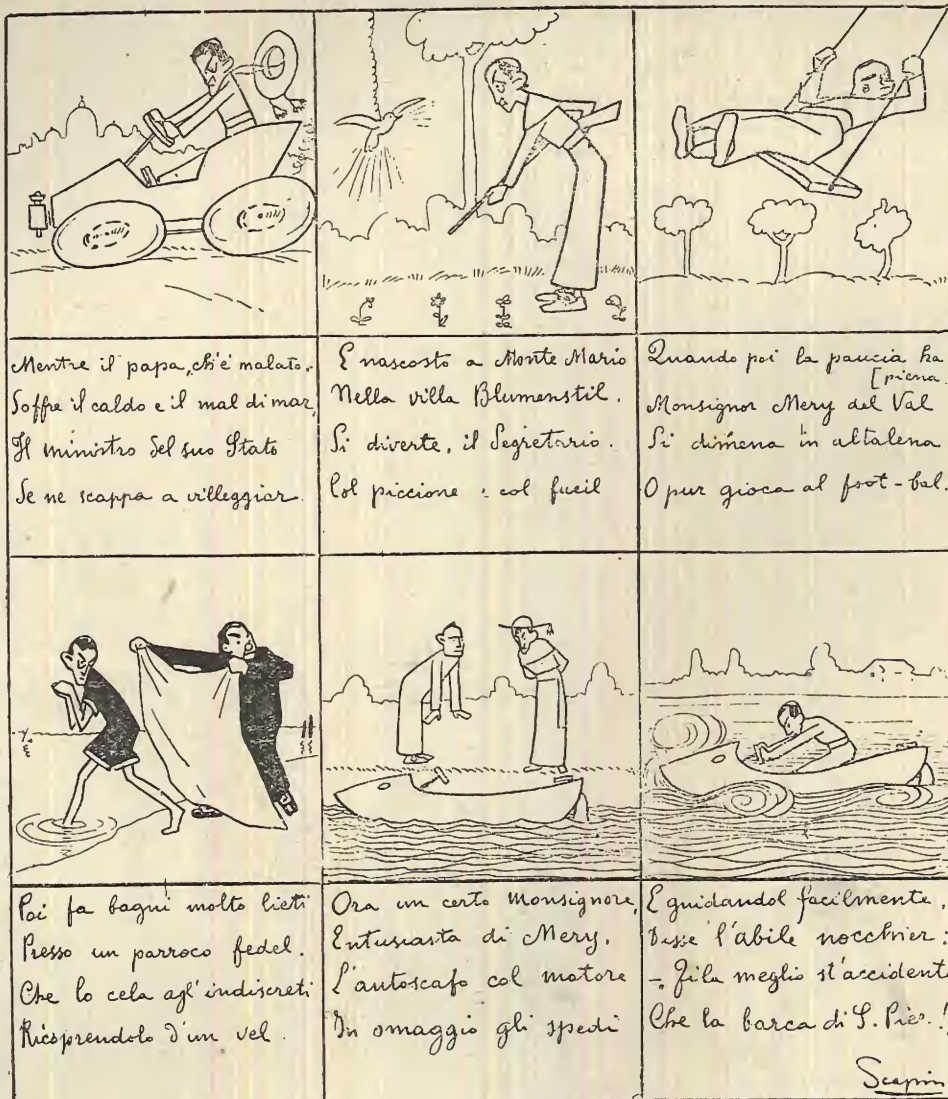 Mentre il papa, ch'è malato,
Soffre il caldo e il mal di mar,
Il ministro del suo Stato
Se ne scappa a villeggiar.
E nascosto a Monte Mario
Nella villa Blumenstil.
Si diverte, il Segretario.
Col piccione e col fucil
Quando poi la pancia ha
[piena
Monsignor Mery del Val
Si dimena in altalena
O pur gioca al foot-bal.
Poi fa bagni molto lieti
Presso un parroco fedel.
Che lo cela agl'indiscreti
Ricoprendolo d'un vel.
Ora un certo Monsignore,
Entusiasta di Mery,
L'autoscafo col motore
In omaggio gli spedì
E guidandol facilmente,
Disse l'abile nocchier:
- Fila meglio st'accidente
Che la barca di S. Pier!
Scapin